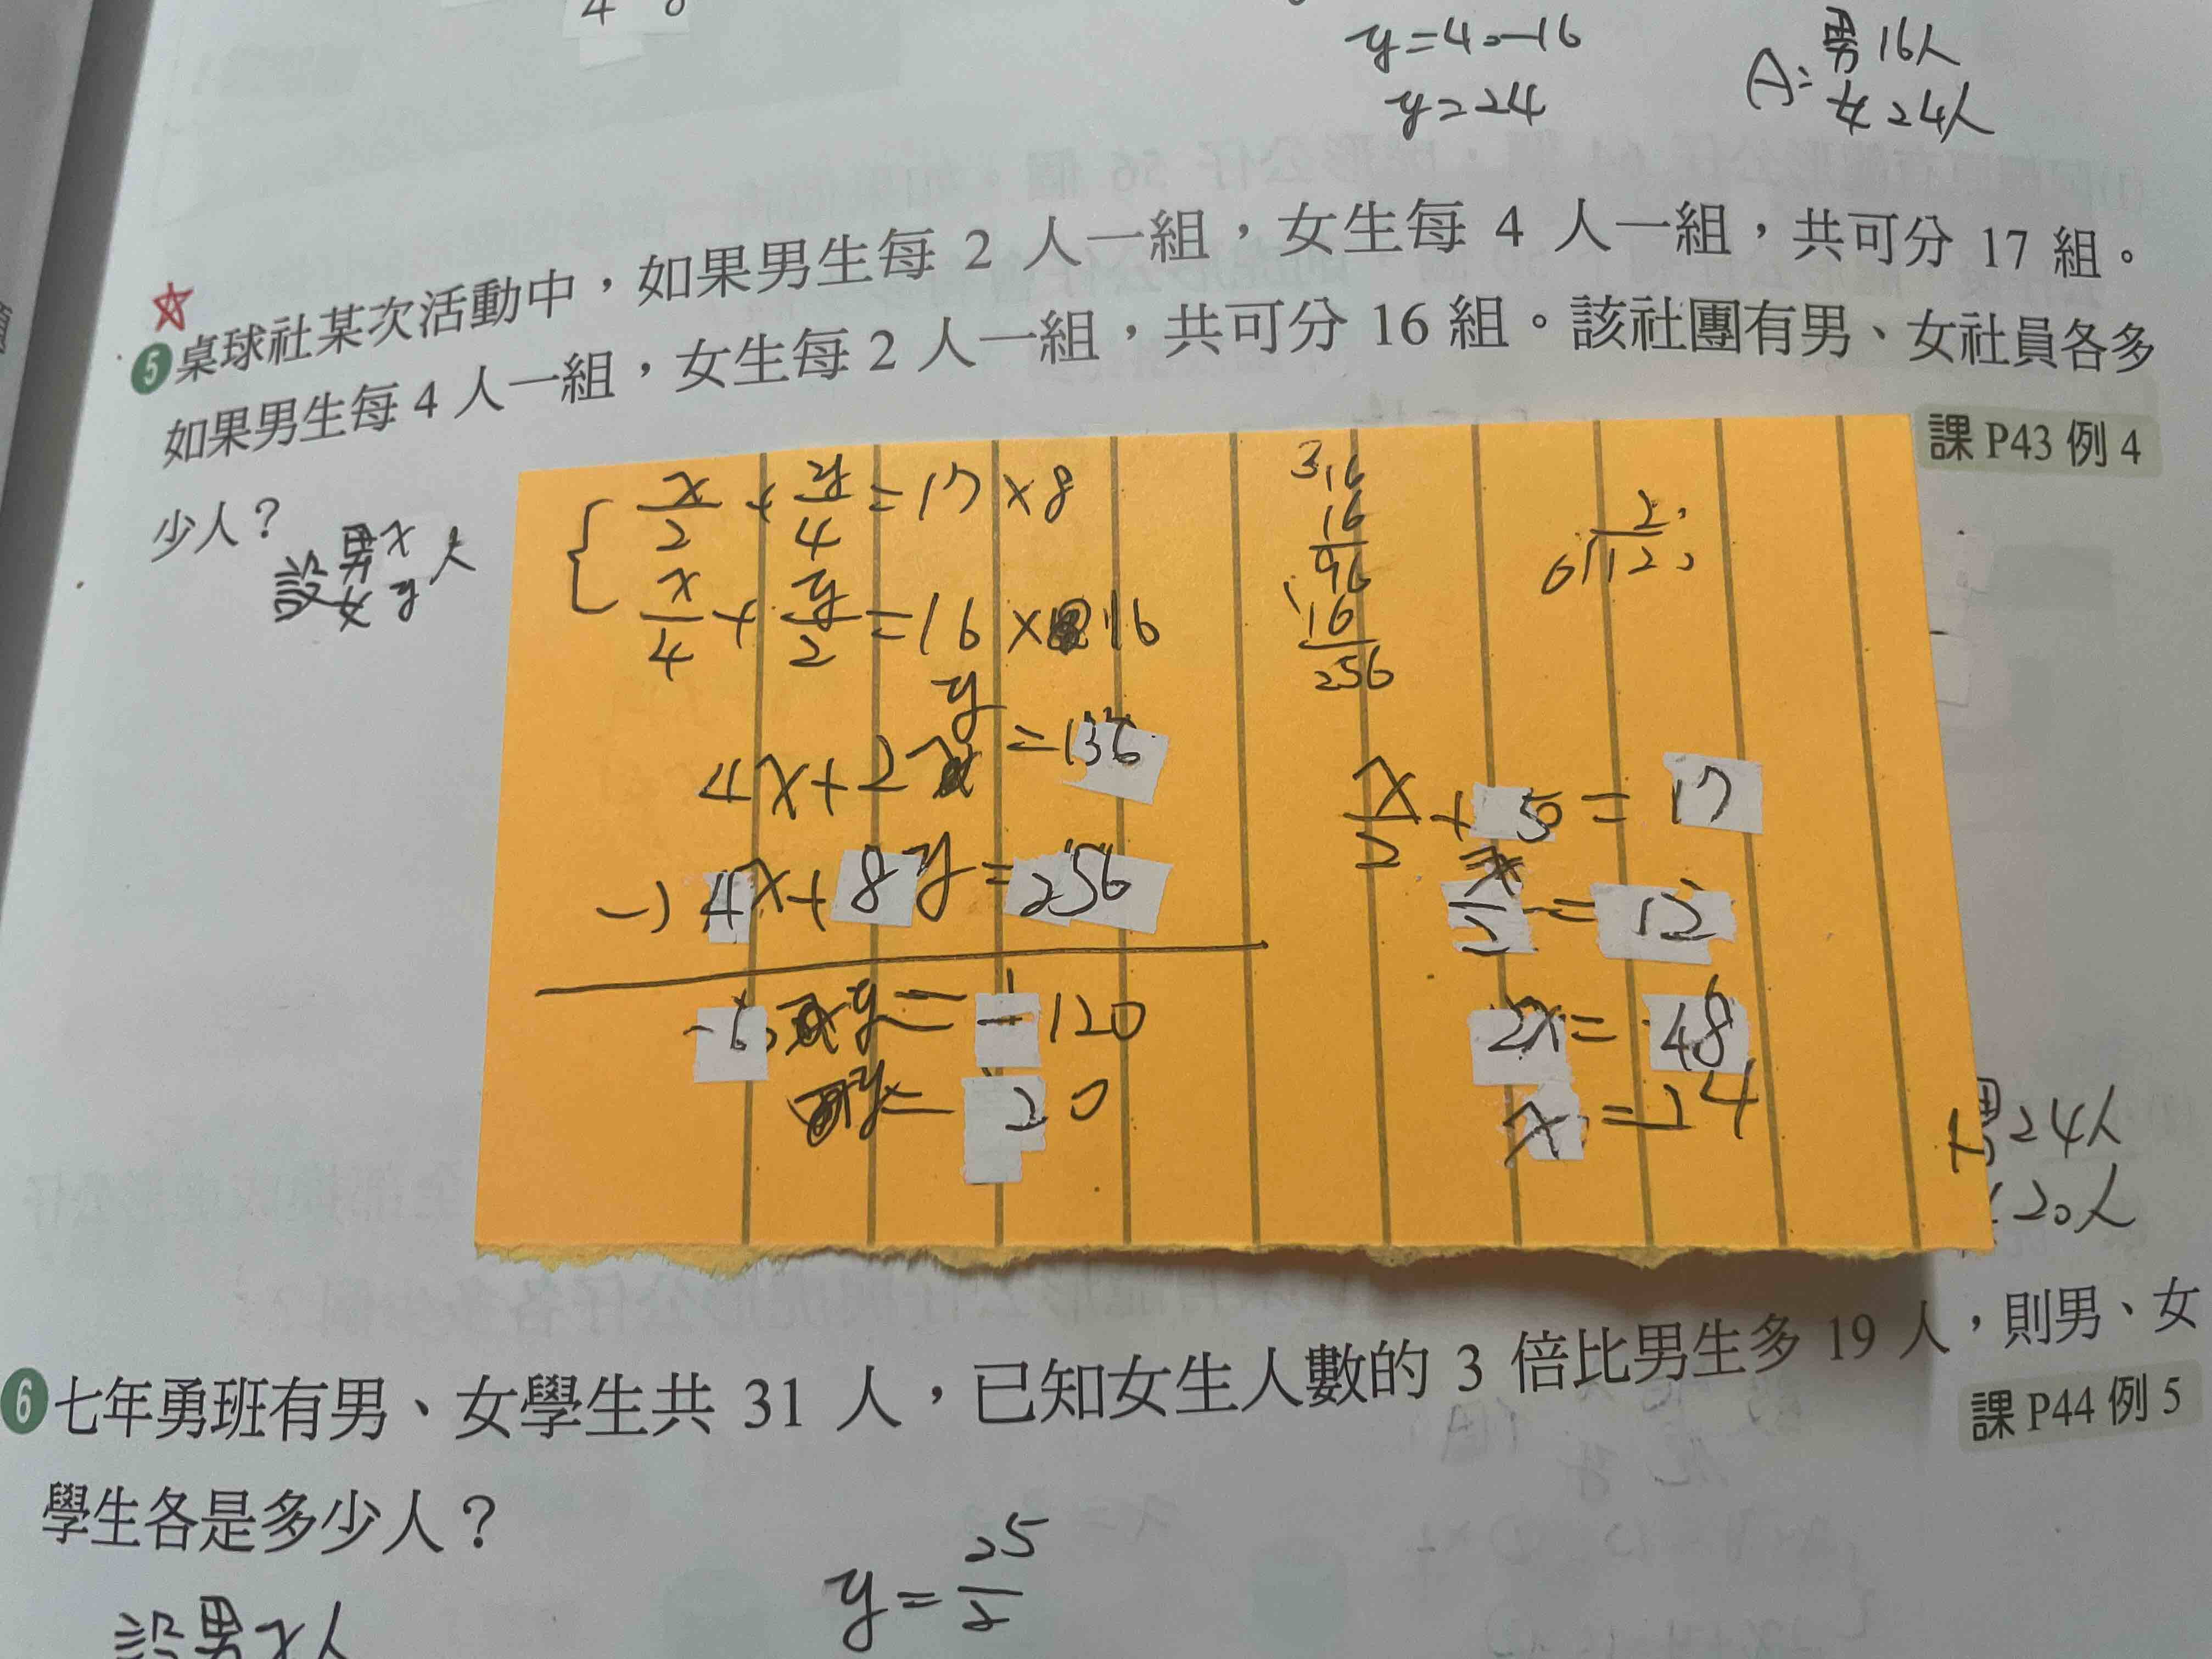 y=40-16
y=24
A: 男16人
女24人
❺桌球社某次活動中，如果男生每 2 人一組，女生每 4 人一組，共可分 17 組。
如果男生每 4 人一組，女生每 2 人一組，共可分 16 組。該社團有男、女社員各多
少人？
課 P43 例 4
設 男x 女y 人
x/2 + y/4 = 17 ×8
x/4 + y/2 = 16 ×16
4x+2y=136
-) 4x+8y=256
-6y=-120
y=20
16
16
96
16
256
2
6)12
x/2 + 5 = 17
x/2 = 12
2x = 48
x = 24
男24人
20人
❻七年勇班有男、女學生共 31 人，已知女生人數的 3 倍比男生多 19 人，則男、女
學生各是多少人？
課 P44 例 5
設男x人
y=25/2